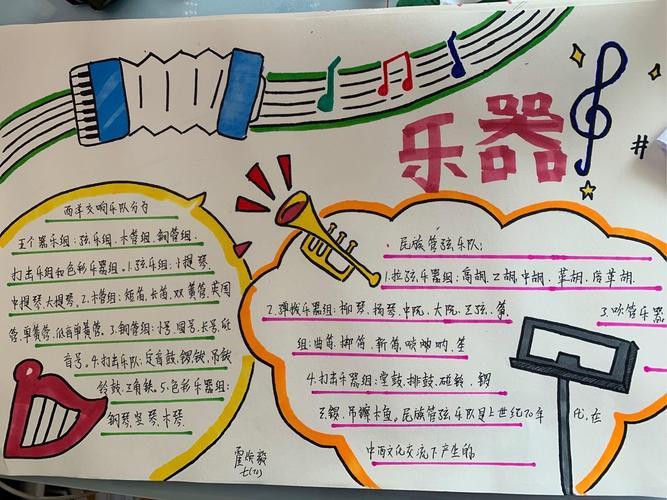 乐器
#
西洋交响乐队分为
五个器乐组:弦乐组、木管组、铜管组、
打击乐组和色彩乐器组。1.弦乐组:小提琴、
中提琴、大提琴。2.木管组:短笛、长笛、双黄管、英国
管、单黄管、低音单黄管。3.铜管组:小号、圆号、长号、低
音号。4.打击乐队:定音鼓、锣钹、吊钹、
铃鼓、三角铁。5.色彩乐器组:
钢琴、竖琴、木琴。
民族管弦乐队:
1.拉弦乐器组:高胡、二胡、中胡、革胡、倍革胡。
2.弹拨乐器组:柳琴、扬琴、中阮、大阮、三弦、
3.吹管乐器
组:曲笛、梆笛、新笛、唢呐、笙
4.打击乐器组:堂鼓、排鼓、碰铃、
锣、吊镲、木鱼。民族管弦乐队是上世纪20年代,在
中西文化交流下产生的
七(21)